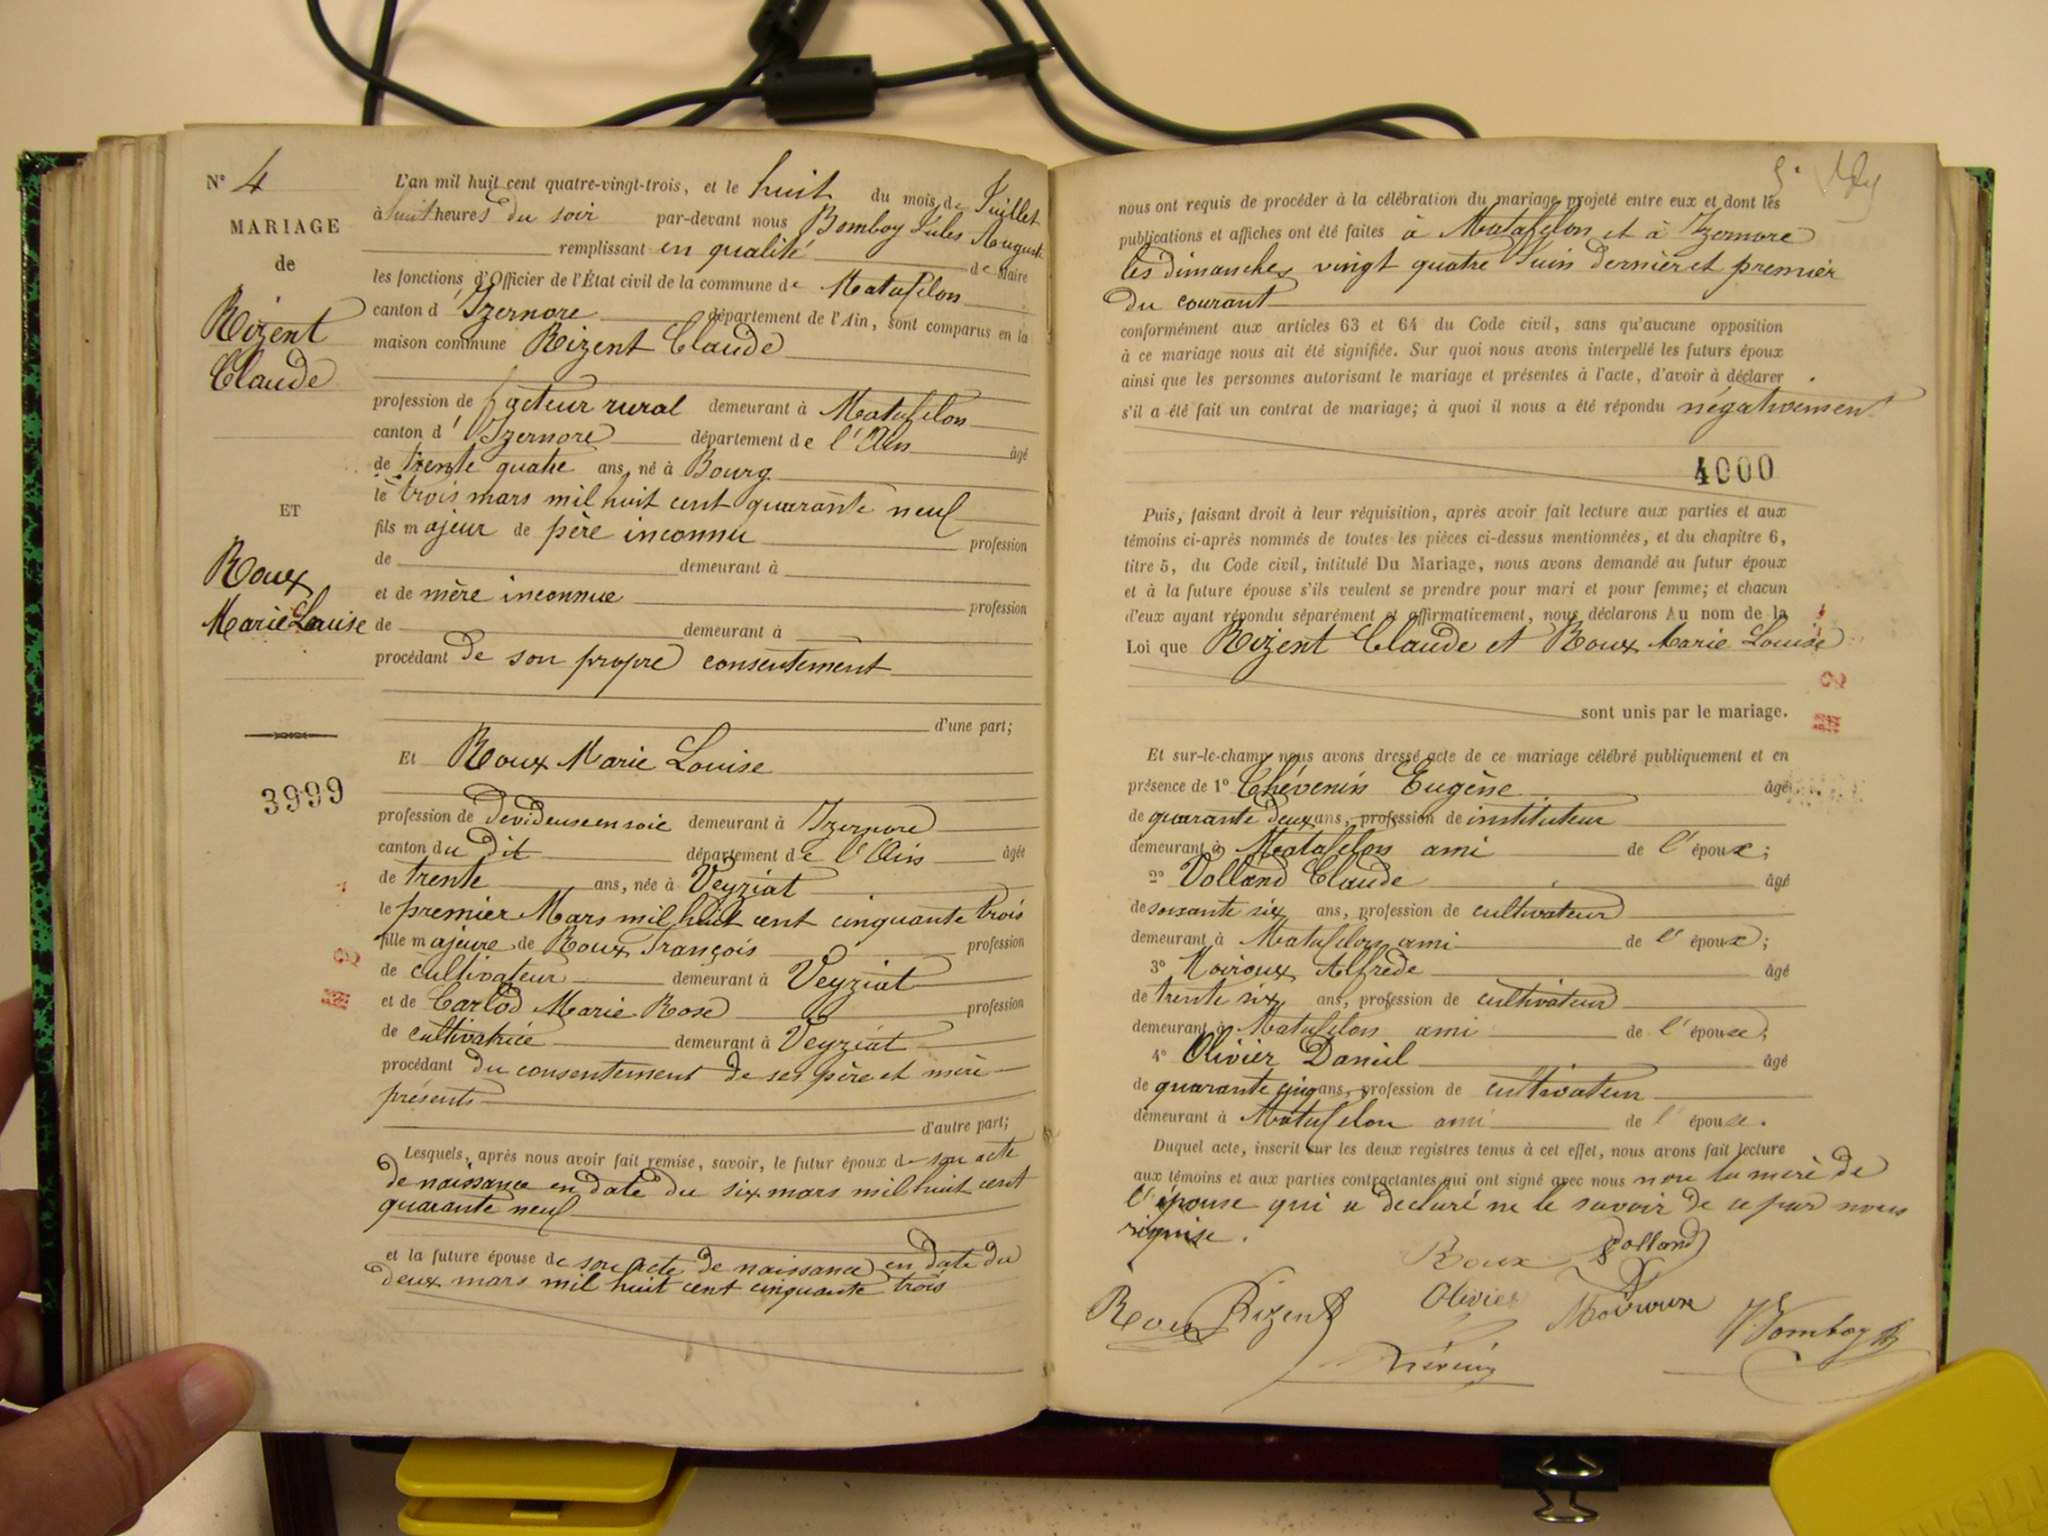 N° 4
MARIAGE
de
Rizent
Claude
ET
Roux
Marie Louise
3999
L'an mil huit cent quatre-vingt-trois, et le huit du mois de Juillet
à huit heures du soir par-devant nous Bomboy Jules August
remplissant en qualité de Maire
les fonctions d'Officier de l'État civil de la commune de Matafelon
canton d'Izernore département de l'Ain, sont comparus en la
maison commune Rizent Claude
profession de facteur rural demeurant à Matafelon
canton d'Izernore département de l'Ain âgé
de trente quatre ans, né à Bourg
le trois mars mil huit cent quarante neuf
fils majeur de père inconnu profession
de demeurant à
et de mère inconnue profession
de demeurant à
procédant de son propre consentement
d'une part;
Et Roux Marie Louise
profession de devideuse en soie demeurant à Izernore
canton du dit département de l'Ain âgée
de trente ans, née à Veyziat
le premier Mars mil huit cent cinquante trois
fille majeure de Roux François profession
de cultivateur demeurant à Veyziat
et de Carlod Marie Rose profession
de cultivatrice demeurant à Veyziat
procédant du consentement de ses père et mère
présents
d'autre part;
Lesquels, après nous avoir fait remise, savoir, le futur époux de son acte
de naissance en date du six mars mil huit cent
quarante neuf
et la future épouse de son acte de naissance en date du
deux mars mil huit cent cinquante trois
nous ont requis de procéder à la célébration du mariage projeté entre eux et dont les
publications et affiches ont été faites à Matafelon et à Izernore
les dimanches vingt quatre Juin dernier et premier
du courant
conformément aux articles 63 et 64 du Code civil, sans qu'aucune opposition
à ce mariage nous ait été signifiée. Sur quoi nous avons interpellé les futurs époux
ainsi que les personnes autorisant le mariage et présentes à l'acte, d'avoir à déclarer
s'il a été fait un contrat de mariage; à quoi il nous a été répondu négativement
4000
Puis, faisant droit à leur réquisition, après avoir fait lecture aux parties et aux
témoins ci-après nommés de toutes les pièces ci-dessus mentionnées, et du chapitre 6,
titre 5, du Code civil, intitulé Du Mariage, nous avons demandé au futur époux
et à la future épouse s'ils veulent se prendre pour mari et pour femme; et chacun
d'eux ayant répondu séparément et affirmativement, nous déclarons Au nom de la
Loi que Rizent Claude et Roux Marie Louise
sont unis par le mariage.
Et sur-le-champ nous avons dressé acte de ce mariage célébré publiquement et en
présence de 1° Thévenin Eugène âgé
de quarante deux ans, profession de instituteur
demeurant à Matafelon ami de l'époux;
2° Volland Claude âgé
de soixante six ans, profession de cultivateur
demeurant à Matafelon ami de l'époux;
3° Moiroux Alfrede âgé
de trente six ans, profession de cultivateur
demeurant à Matafelon ami de l'épouse;
4° Olivier Daniel âgé
de quarante cinq ans, profession de cultivateur
demeurant à Matafelon ami de l'épouse.
Duquel acte, inscrit sur les deux registres tenus à cet effet, nous avons fait lecture
aux témoins et aux parties contractantes qui ont signé avec nous non la mère de
l'épouse qui a declaré ne le savoir de ce par nous
requise.
Roux Volland
Roux Rizent Olivier Moiroux J Bomboy
Thévenin